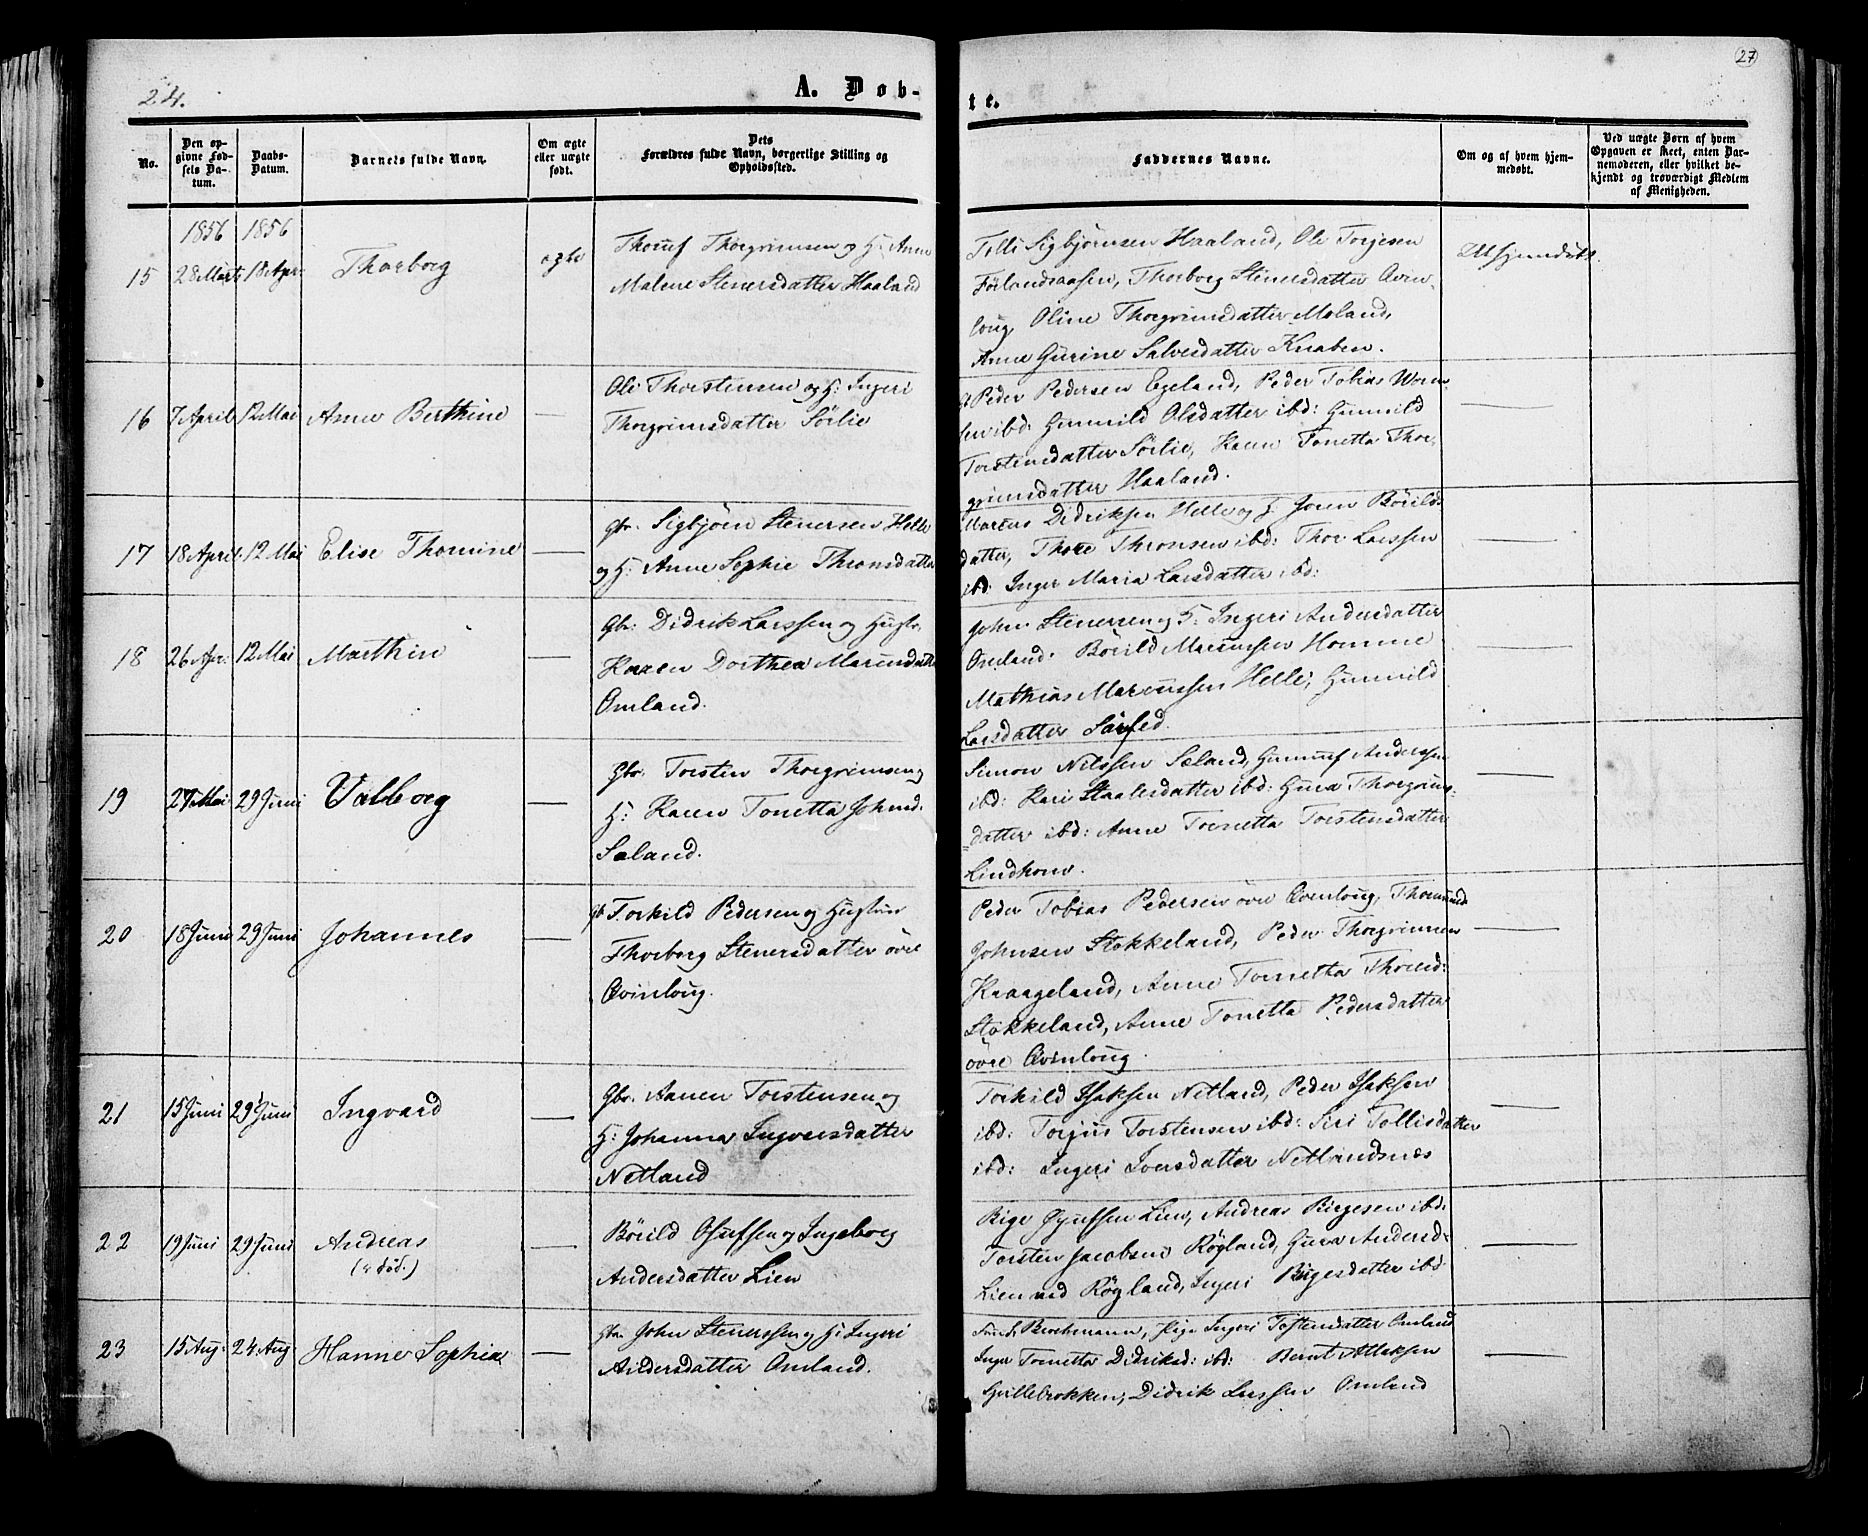 24.
27
A. Døb-
te.
No.
Den op-
givne Fød-
sels Da-
tum.
Daabs-
Datum.
Barnets fulde Navn.
Om ægte
eller uægte
født.
Dets
Forældres fulde Navn, borgerlige Stilling og
Opholdssted.
Faddernes Navne.
Om og af hvem hjem-
medøbt.
Ved uægte Børn af hvem
Opgaven er skeet, enten Bar-
nemoderen, eller hvilket be-
kjendt og troværdigt Medlem
af Menigheden.
1856 1856
15 28 Marts 18 Apr: Thorborg ægte
Thorgrimsen og H: Anne
Malene Stenersdatter Haaland
Tolli Sigbjørnsen Haaland, Ole Torjesen
Førlandsaasen, Thorborg Stenersdatter Qvin-
loug, Oline Thorgrimsdatter Moland,
Anne Gurine Salvesdatter Knaben.
16 7 April 12 Mai Anne Berthine —
Ole Thorstensen og H: Ingeri
Thorgrimsdatter Sørlie
Peder Pedersen Egeland, Peder Tobias
ibd: Gunnild Olsdatter ibd: Gunnild
Torstensdatter Sørlie, Karen Tonetta Thor-
grimsdatter Haaland. —
17 18 April 12 Mai Elise Thomine —
Gbr. Sigbjørn Stenersen Helle
og H: Anne Sophie Thronsdatter
Marcus Didriksen Helle og H: Joren Børilds-
datter, Thore Thronsen ibd: Thor Larssen
ibd: Inger Maria Larsdatter ibd: —
18 26 Apr: 12 Mai Marthin —
Gbr: Didrik Larssen og Hustr.
Karen Dorthea
Omland.
John Stenersen og H: Ingeri Andersdatter
Omland. Børild Marcussen Homme
Mathias Marcussen Helle, Gunnild
Larsdatter —
19 27 Mai 29 Juni Valborg —
Gbr. Torsten Thorgrimsen og
H: Karen Tonetta Johnsd.
Sæland.
Simon Nilssen Sæland, Gunnuf Anderssen
ibd: Kari Staalesdatter ibd: Guro Thorgrims-
datter ibd: Anne Tonetta Torstensdatter
Lindhom. —
20 18 Juni 29 Juni Johannes —
Gb Torkild Pedersen og Hustru
Thorborg Stenersdatter øvre
Qvinloug.
Peder Tobias Pedersen øvre Qvinloug, Thormund
Johnsen Stokkeland, Peder Thorgrimsen
Kraageland, Anne Tonetta
Stokkeland, Anne Tonetta Pedersdatter
øvre Qvinloug. —
21 15 Juni 29 Juni Ingvard —
Gbr. Aanen Torstensen og
H: Johanna Ingversdatter
Netland
Torkild Isaksen Netland, Peder Isaksen
ibd: Torjus Torstensen ibd: Siri Tollisdatter
ibd: Ingeri Iversdatter Netlandsnæs —
22 19 Juni 29 Juni Andreas —
(† død.)
Børild Osufsen og Ingeborg
Andersdatter Lien
Birge Gjufsen Lien, Andreas Birgesen ibd:
Torsten Jacobsen Røgland, Guro Andersd:
Lien ved Røgland, Ingeri Birgesdatter ibd —
23 15 Aug: 24 Aug Hanne Sophia —
Gbr. John Stenerssen og H: Ingeri
Andersdatter Omland.
Brochmann, Pige Ingeri Tostensdatter Omland
Inger Tonetta Didriksd: ibd: Bernt Atlaksen
Gyllebrokken, Didrik Larssen Omland —